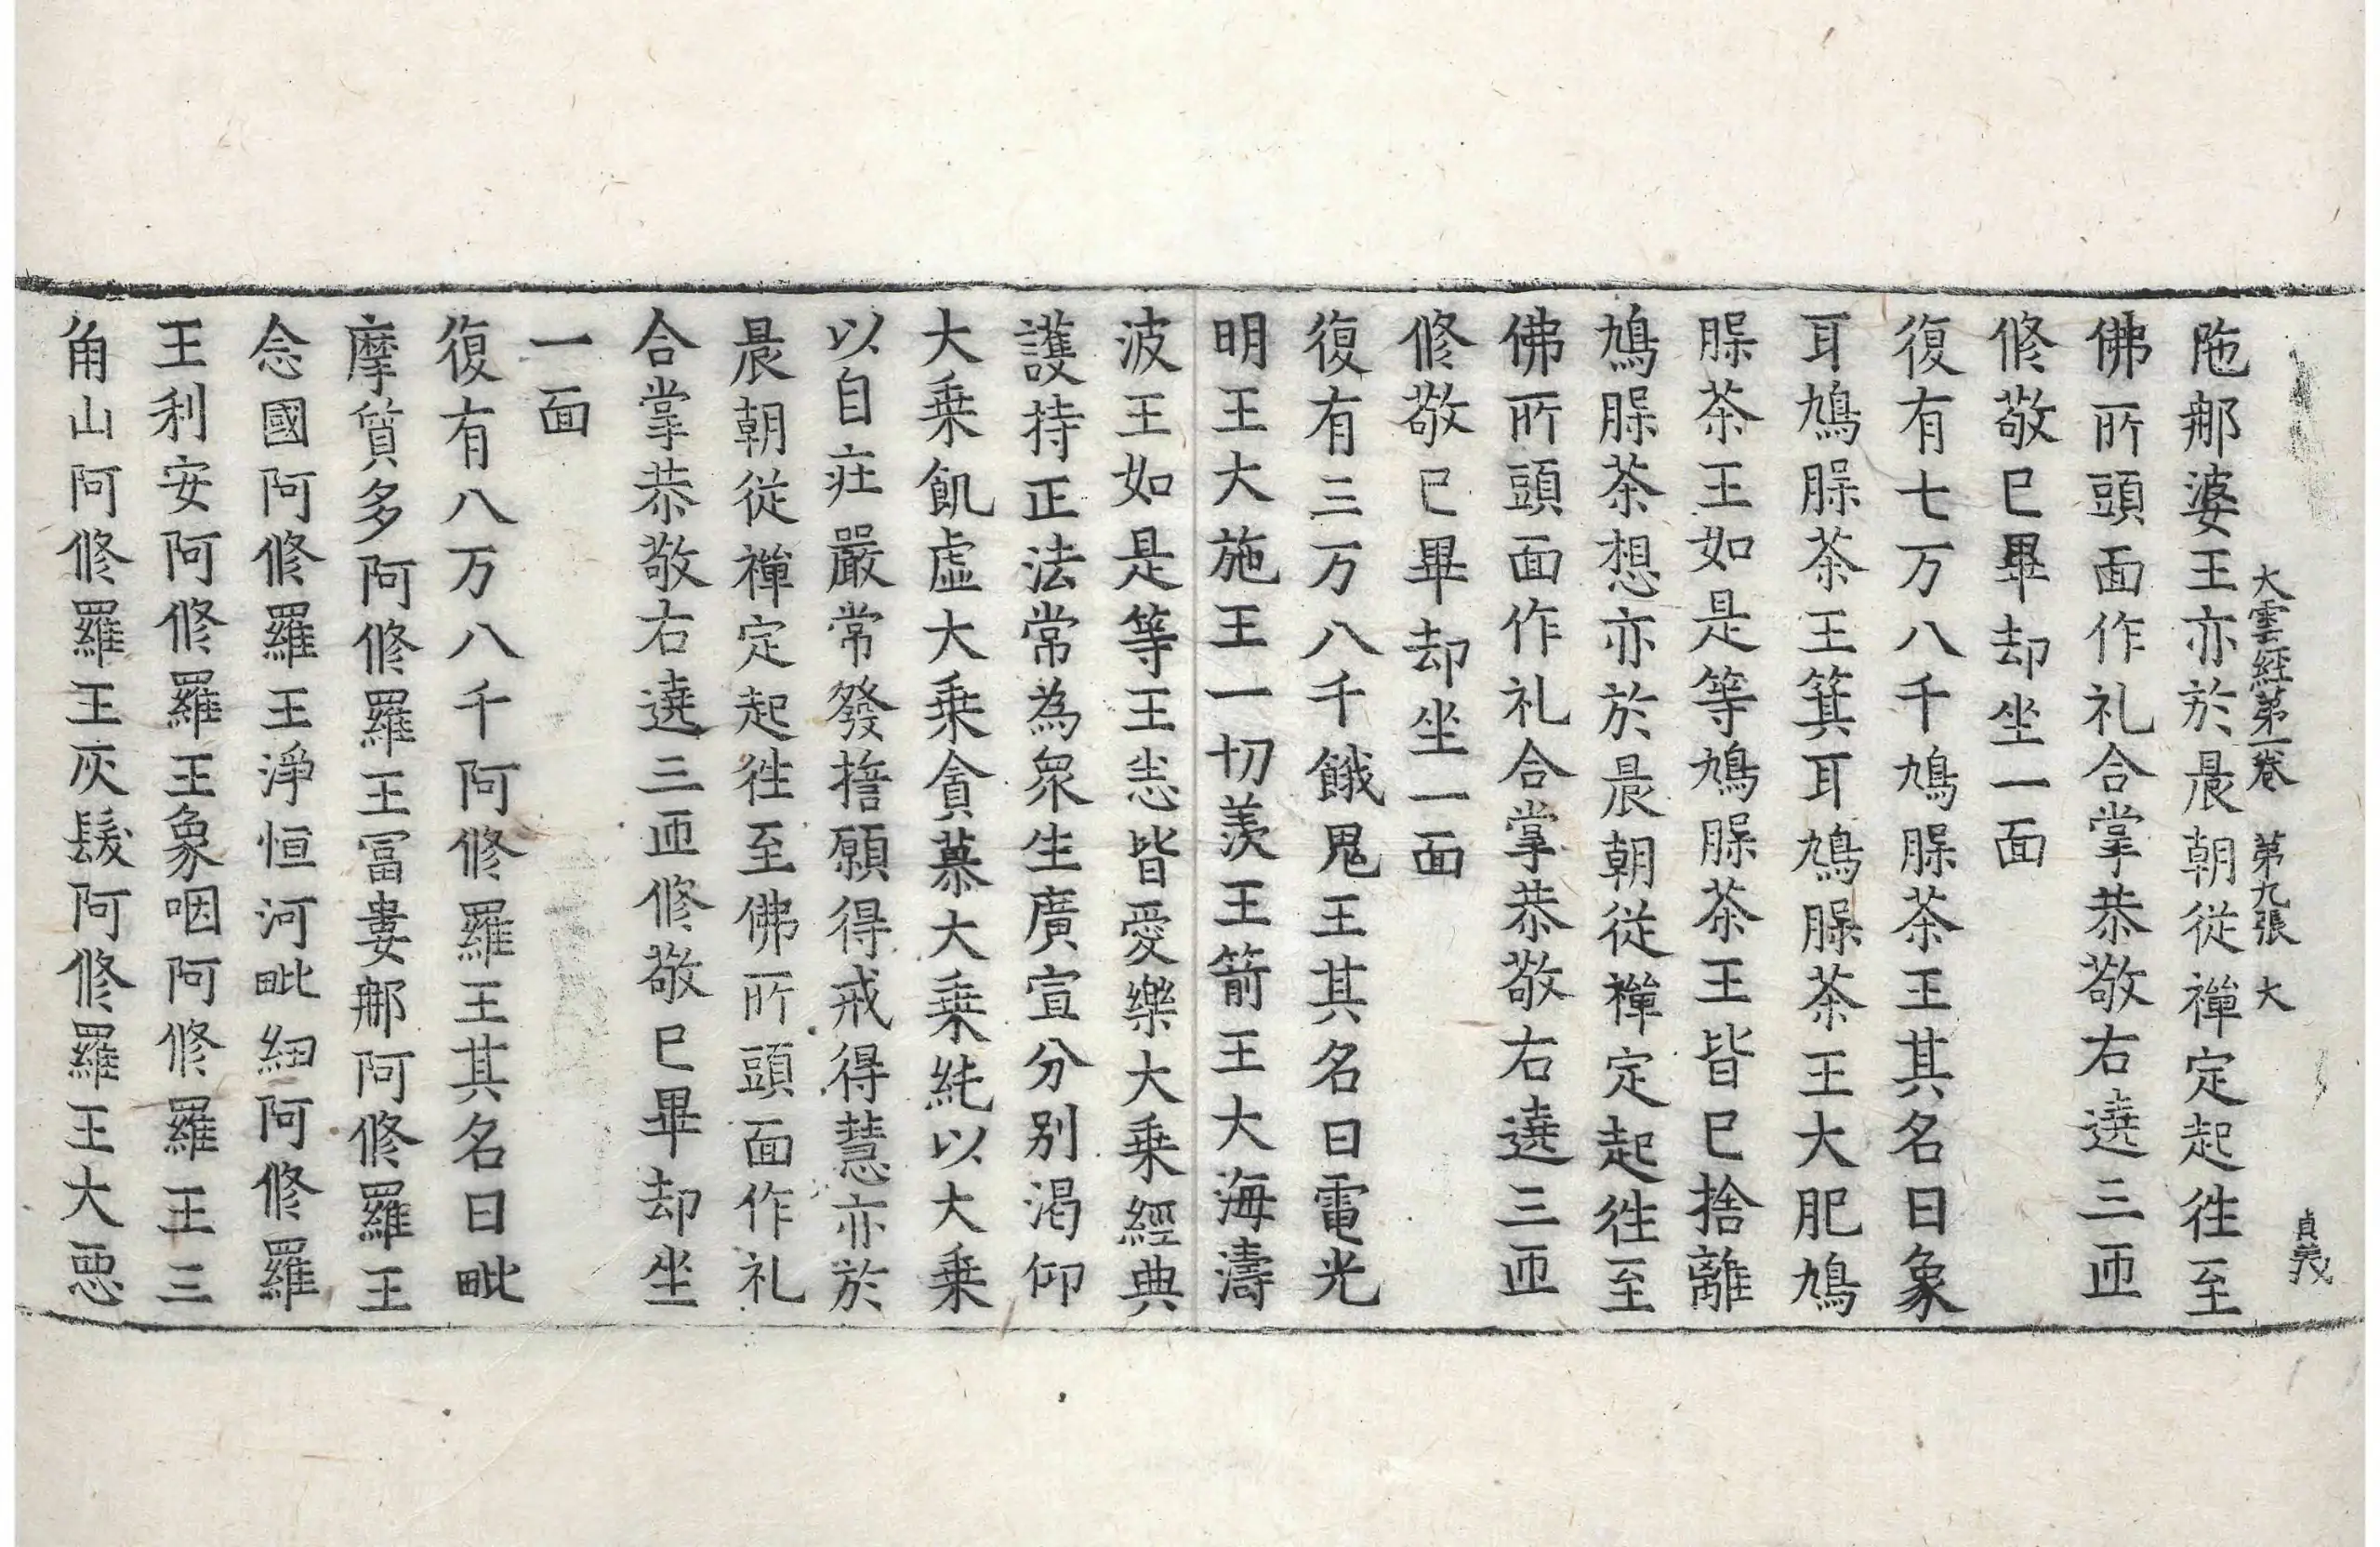 大雲經第一卷　第九張　大
貞義
陁那婆王亦於晨朝從禪定起往至
佛所頭面作礼合掌恭敬右遶三匝
修敬已畢却坐一面
復有七万八千鳩脲茶王其名曰象
耳鳩脲茶王箕耳鳩脲茶王大肥鳩
脲茶王如是等鳩脲茶王皆已捨離
鳩脲茶想亦於晨朝從禪定起往至
佛所頭面作礼合掌恭敬右遶三匝
修敬已畢却坐一面
復有三万八千餓鬼王其名曰電光
明王大施王一切羡王箭王大海濤
波王如是等王恚皆愛樂大乗經典
護持正法常為衆生廣宣分別渇仰
大乗飢虛大乗貪慕大乗純以大乗
以自莊嚴常發擔願得戒得慧亦於
晨朝從禪定起往至佛所頭面作礼
合掌恭敬右遶三匝修敬已畢却坐
一面
復有八万八千阿修羅王其名曰毗
摩質多阿修羅王冨婁那阿修羅王
念國阿修羅王淨恒河毗紐阿修羅
王利安阿修羅王象咽阿修羅王三
角山阿修羅王灰髮阿修羅王大惡